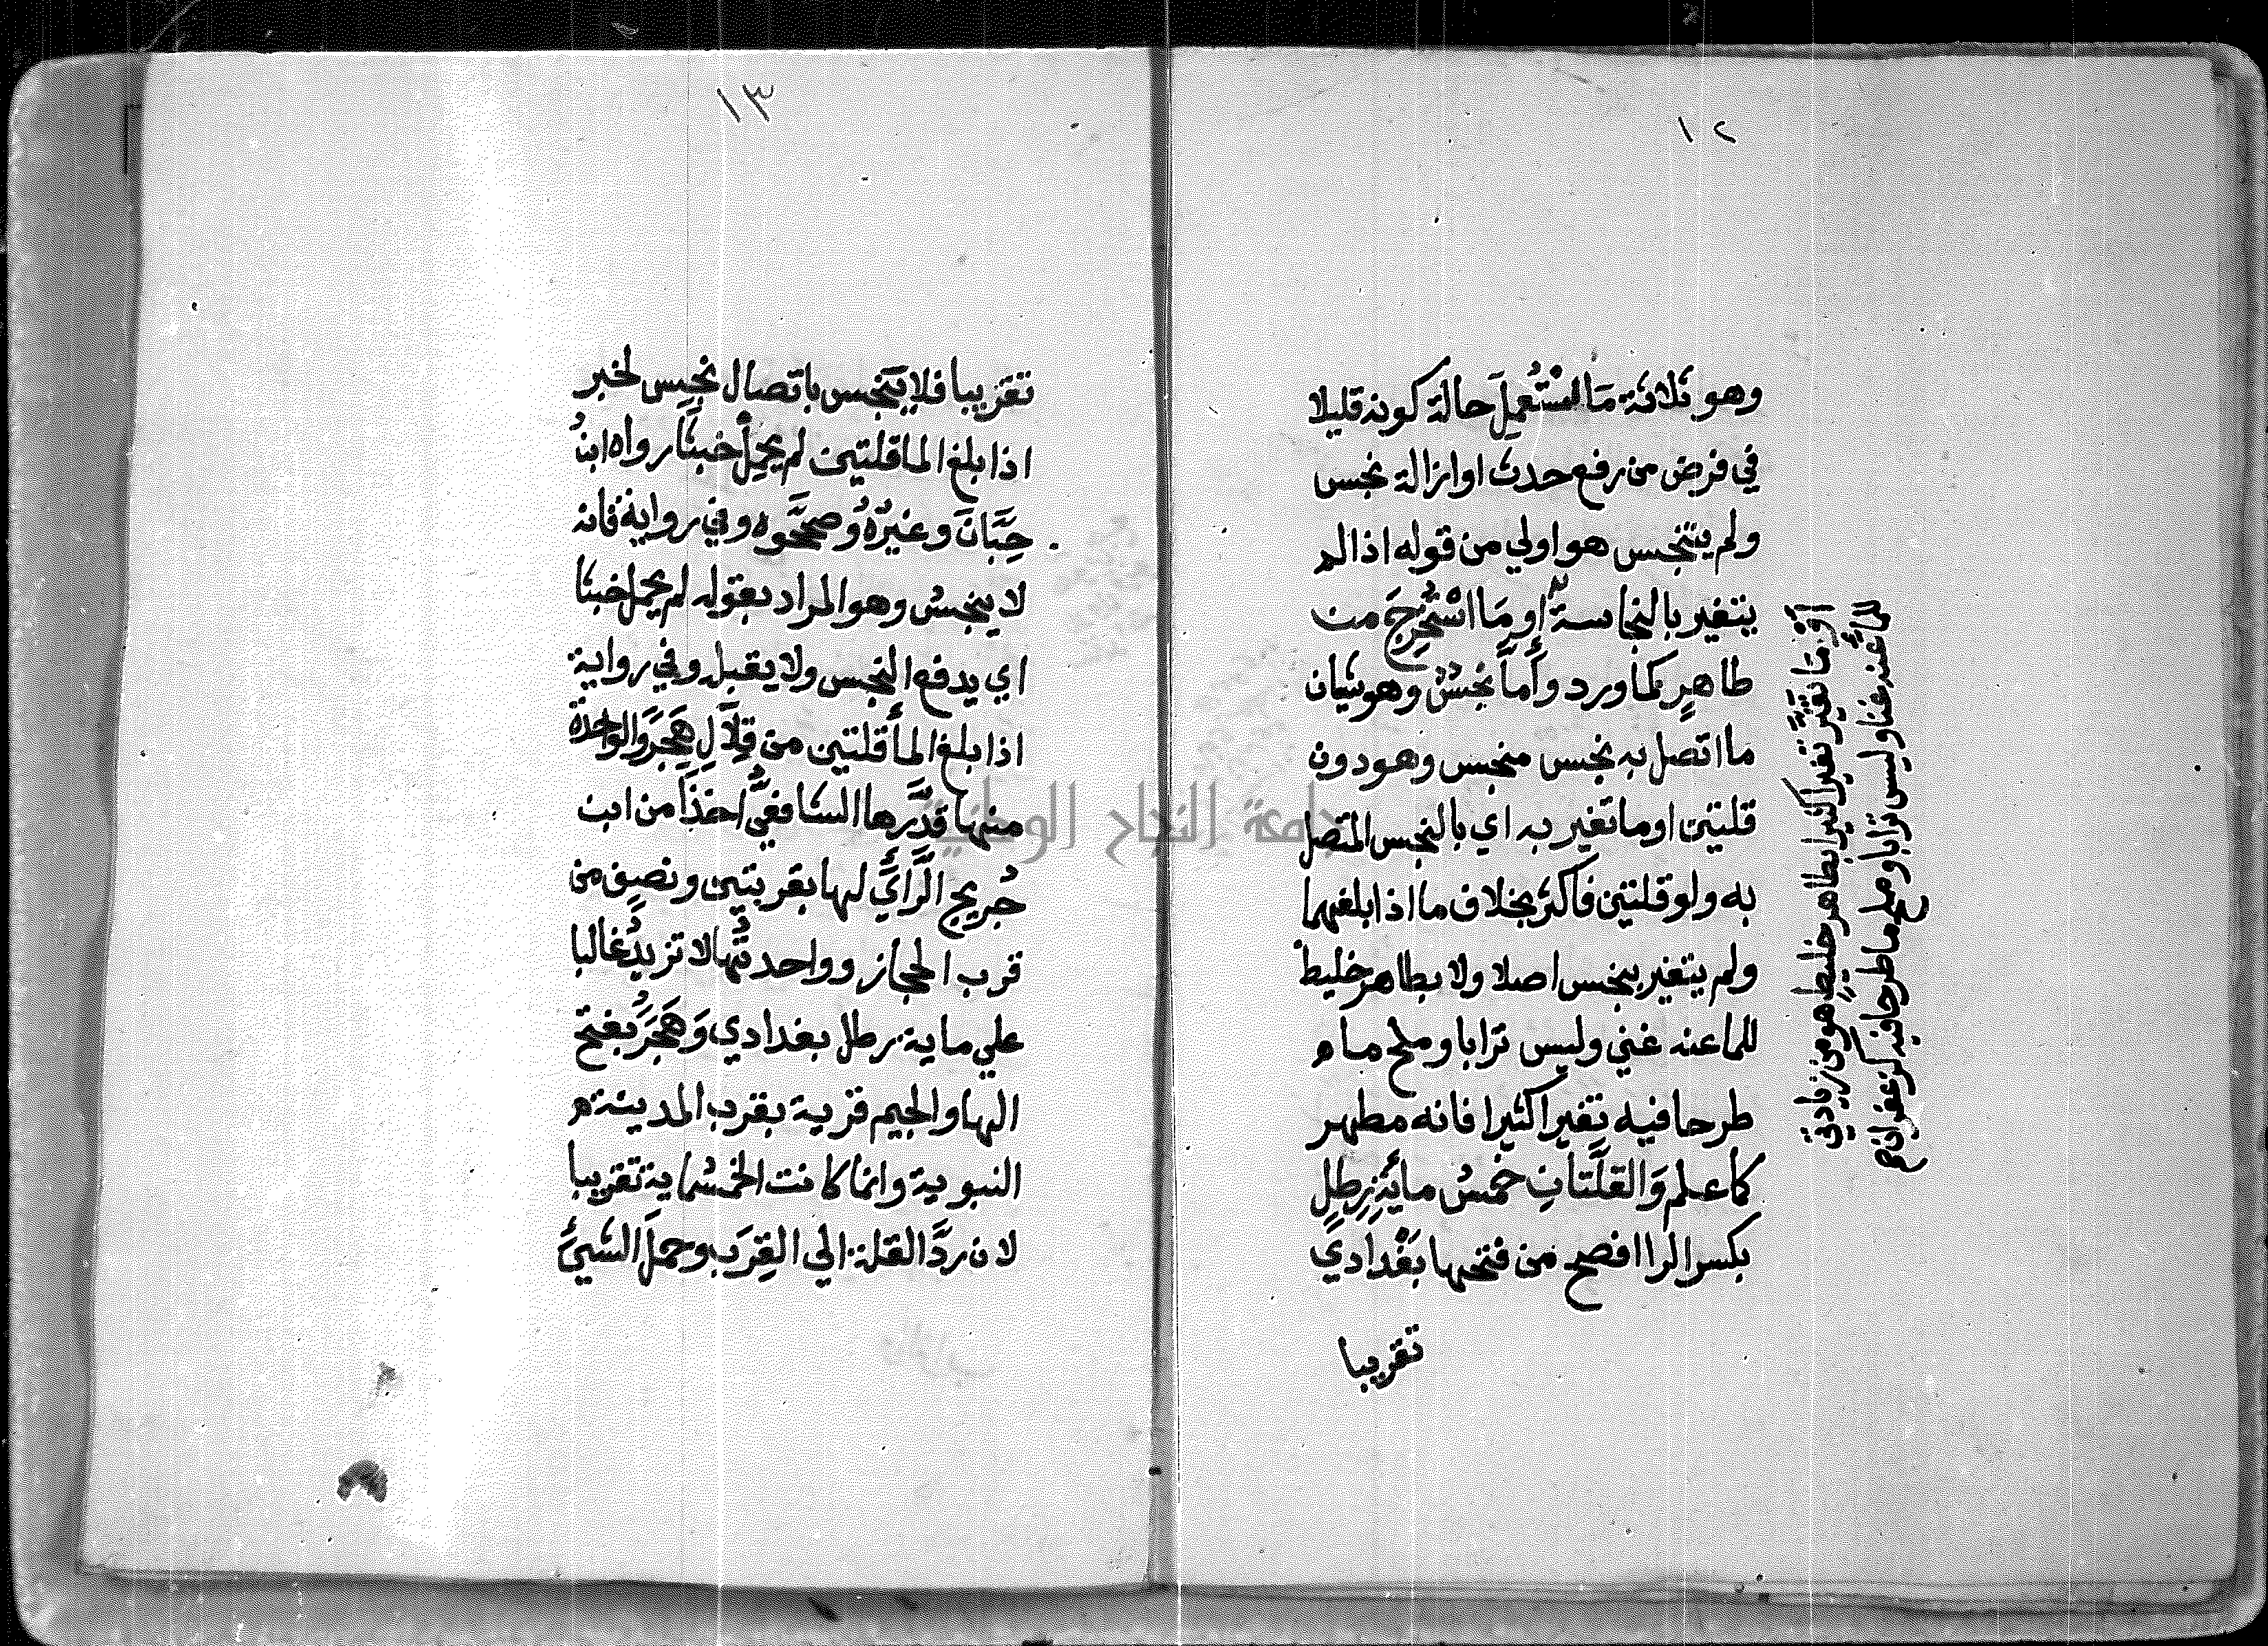 ١٢
وهو ثلاثة مَا اسْتُعمِلَ حالة كونه قليلا
في فرض من رفع حدث او ازالة نجس
ولم يتنجس هو اولي من قوله اذا لم
يتغير بالنجاسة أو مَا اسْتُخرِجَ من
طاهرٍ كماورد وأما نجسٌ وهو شيان
ما اتصل به نجس منجس وهو دون
قلتين او ما تغير به اي بالنجس المتصل
به ولو قلتين فاكثر بخلاف ما اذا بلغهما
ولم يتغير بنجس اصلا ولا بطاهر خليط
للما عنه غني وليس ترابا وملح ماء
طرحا فيه تغيرا كثيرا فانه مطهر
كما علم وَالقلَّتانِ خمسُ مائةِ رِطلٍ
بكسر الرا افصح من فتحها بَغْدَاديٍّ
تقريبا
أوْ مَا تغيَّر تغيرا كثيرا بطاهر خليط هو من زيادتي
للماءِ عنه غنا وليس ترابا وملح ما طرحا فيه كزعفران صح
١٣
تقريبا فلا يتنجس باتصال نجس لخبر
اذا بلغ الما قلتين لم يحمل خبثا رواه ابنُ
حِبَّانَ وغيرُهُ وصححوه وفي رواية فانه
لا ينجسُ وهو المراد بقوله لم يحمل خبثا
اي يدفع النجس ولا يقبل وفي رواية
اذا بلغ الما قلتين من قِلَالِ هَجَرَ والواحدة
منها قدَّرها الشافعيُّ اخذا من ابن
جُريج الرَّائي لها بقربتين ونصف من
قرب الحجاز وواحدتُها لا تزيدُ غالبا
علي ماية رطل بغدادي وَهَجَرُ بفتح
الها والجيم قرية بقرب المدينة
النبوية وانما كانت الخمسُماية تقريبا
لان ردَّ القلة الي القِرَب وحملَ الشيئَ
جامعة النجاح الوطنية